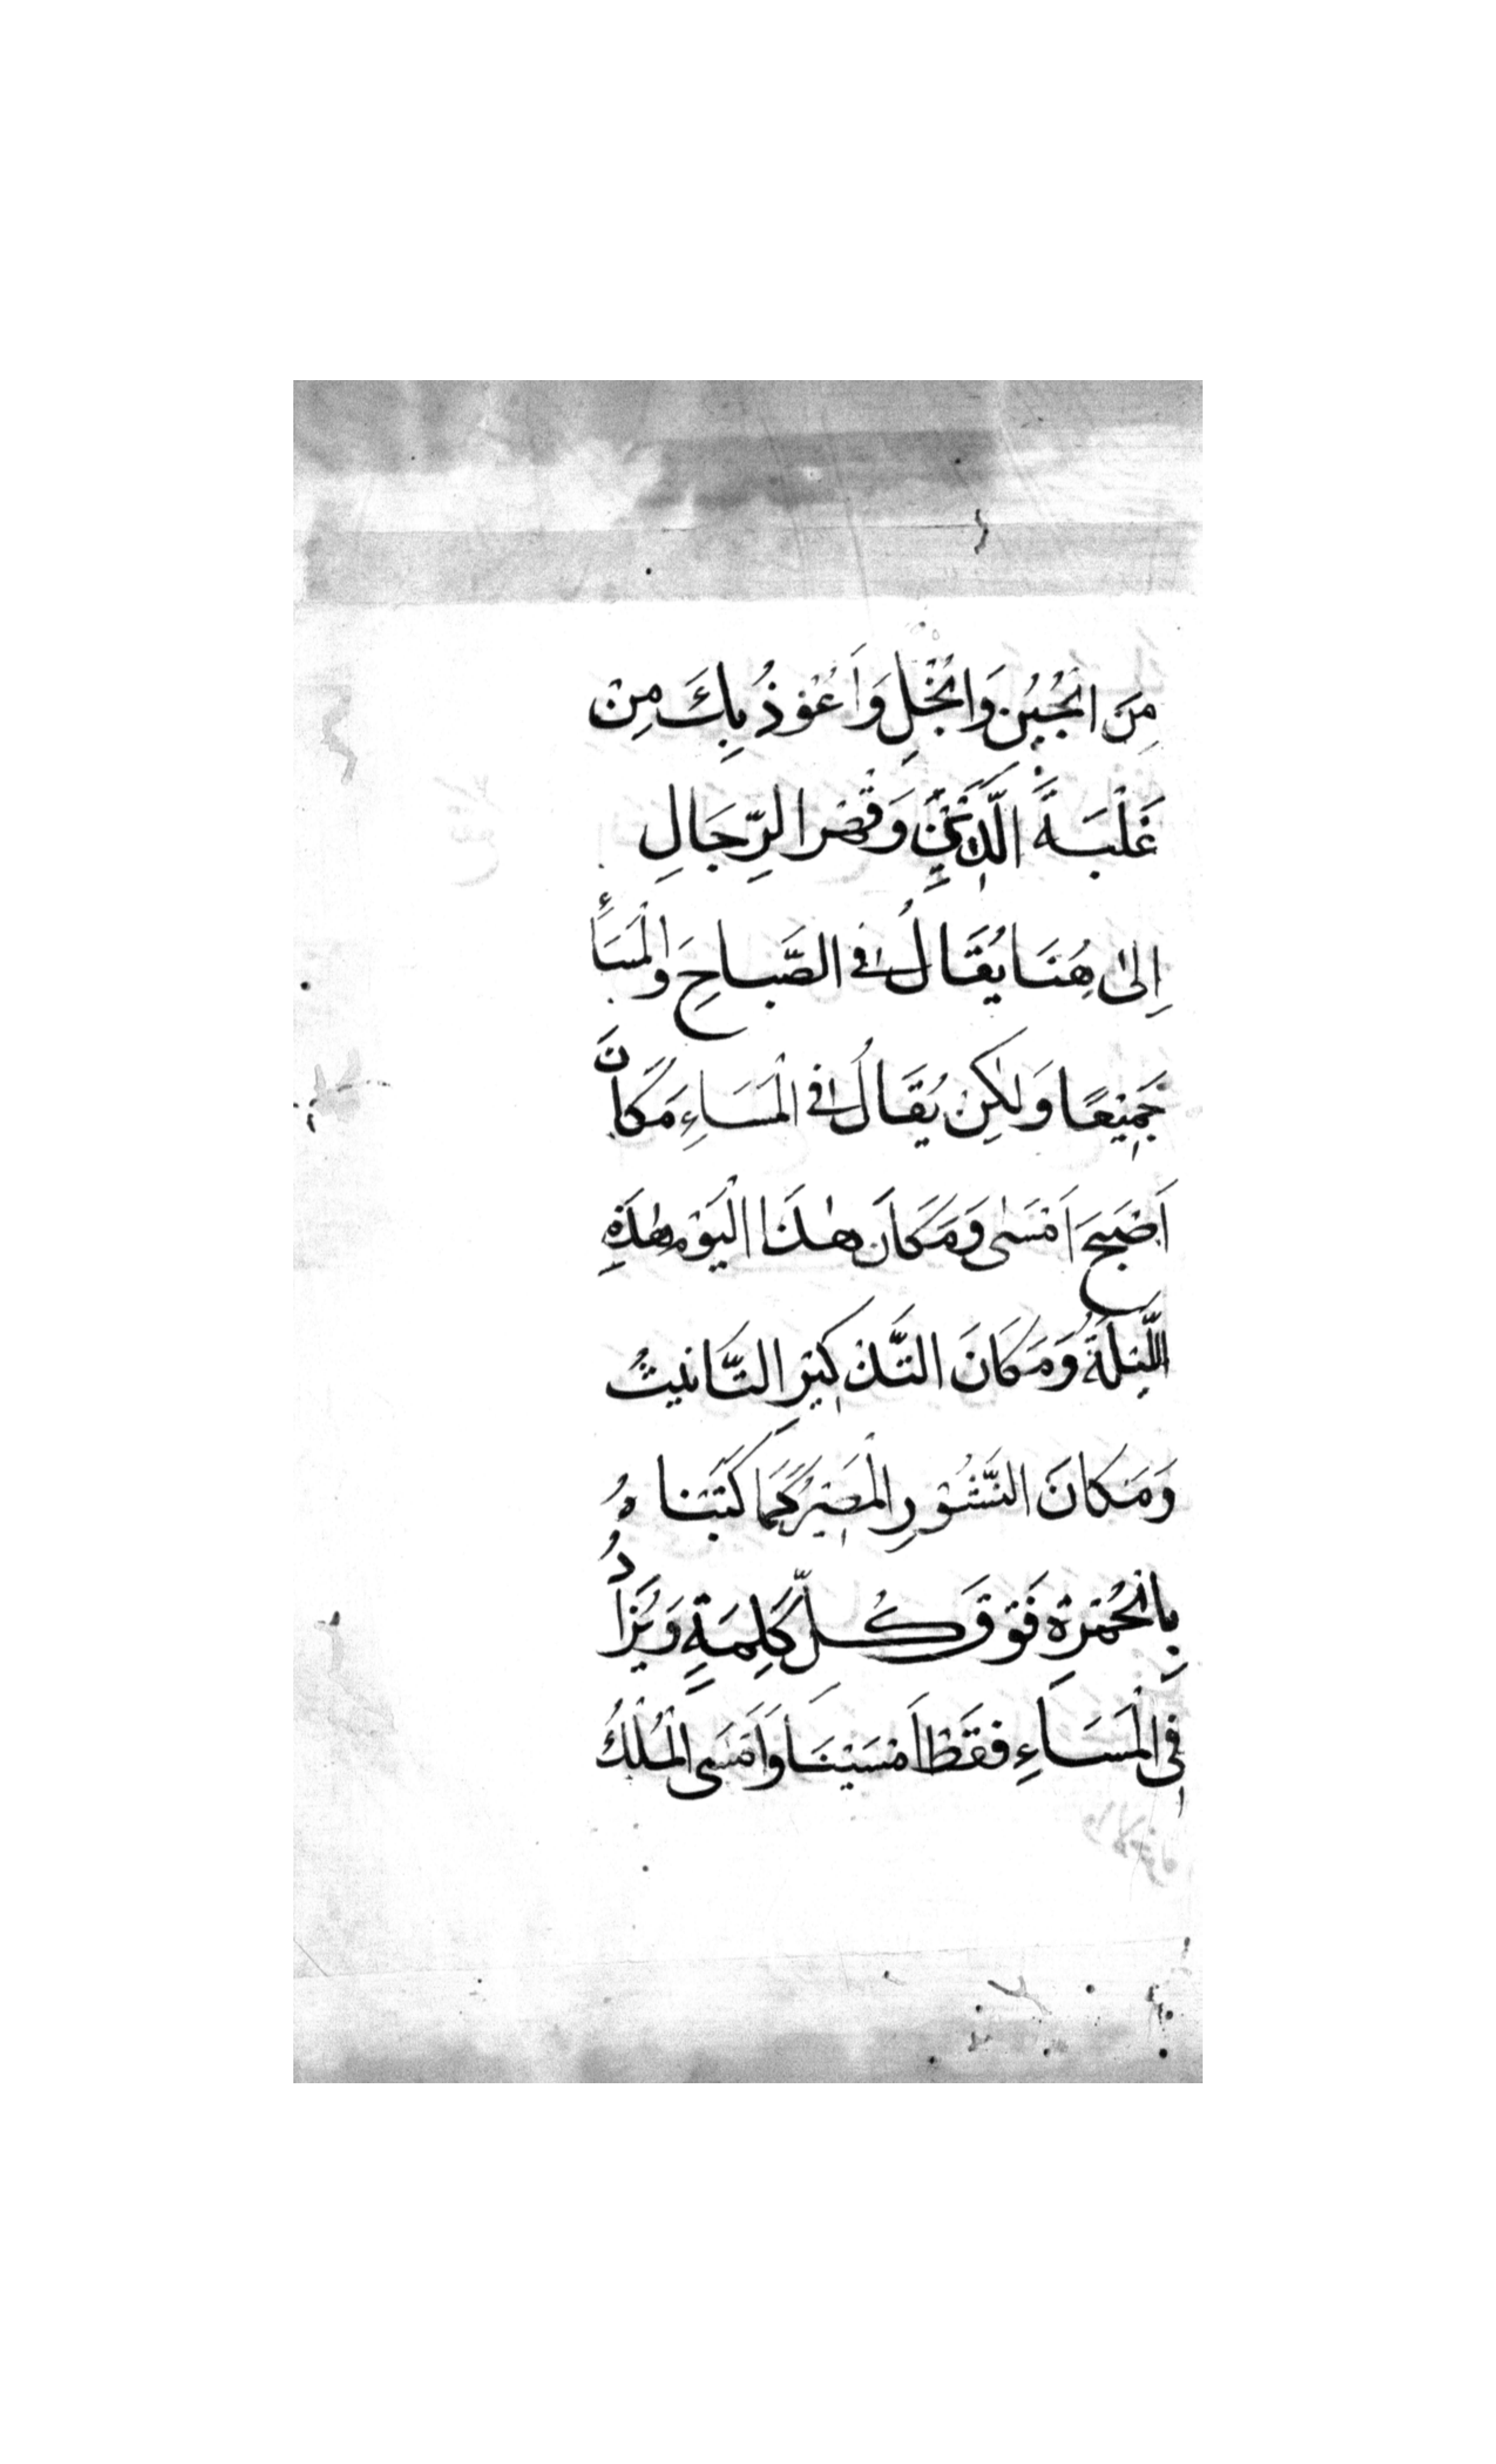 مِنَ الْجُبْنِ وَالْبُخْلِ وَاَعُوْذُ بِكَ مِنْ
غَلَبَةِ الدَّيْنِ وَقَهْرِ الرِّجَالِ
اِلىٰ هُنَا يُقَالُ فِى الصَّبَاحِ وَالْمَسَأِ
جَمِيْعًا وَلٰكِنْ يُقَالُ فِى الْمَسَاءِ مَكَانَ
اَصْبَحَ اَمْسٰى وَمَكَانَ هٰذَا الْيَوْمِ هٰذِهِ
اللَّيْلَةُ وَمَكَانَ التَّذْكِيْرِ التَّانِيثُ
وَمَكَانَ النُّشُوْرِ الْمَصِيْرُ كَمَا كَتَبْنَاهُ
بِالْحُمْرَةِ فَوْقَ كُلِّ كَلِمَةٍ وَيُزَادُ
فِى الْمَسَاءِ فَقَطْ اَمْسَيْنَا وَاَمْسَى الْمُلْكُ